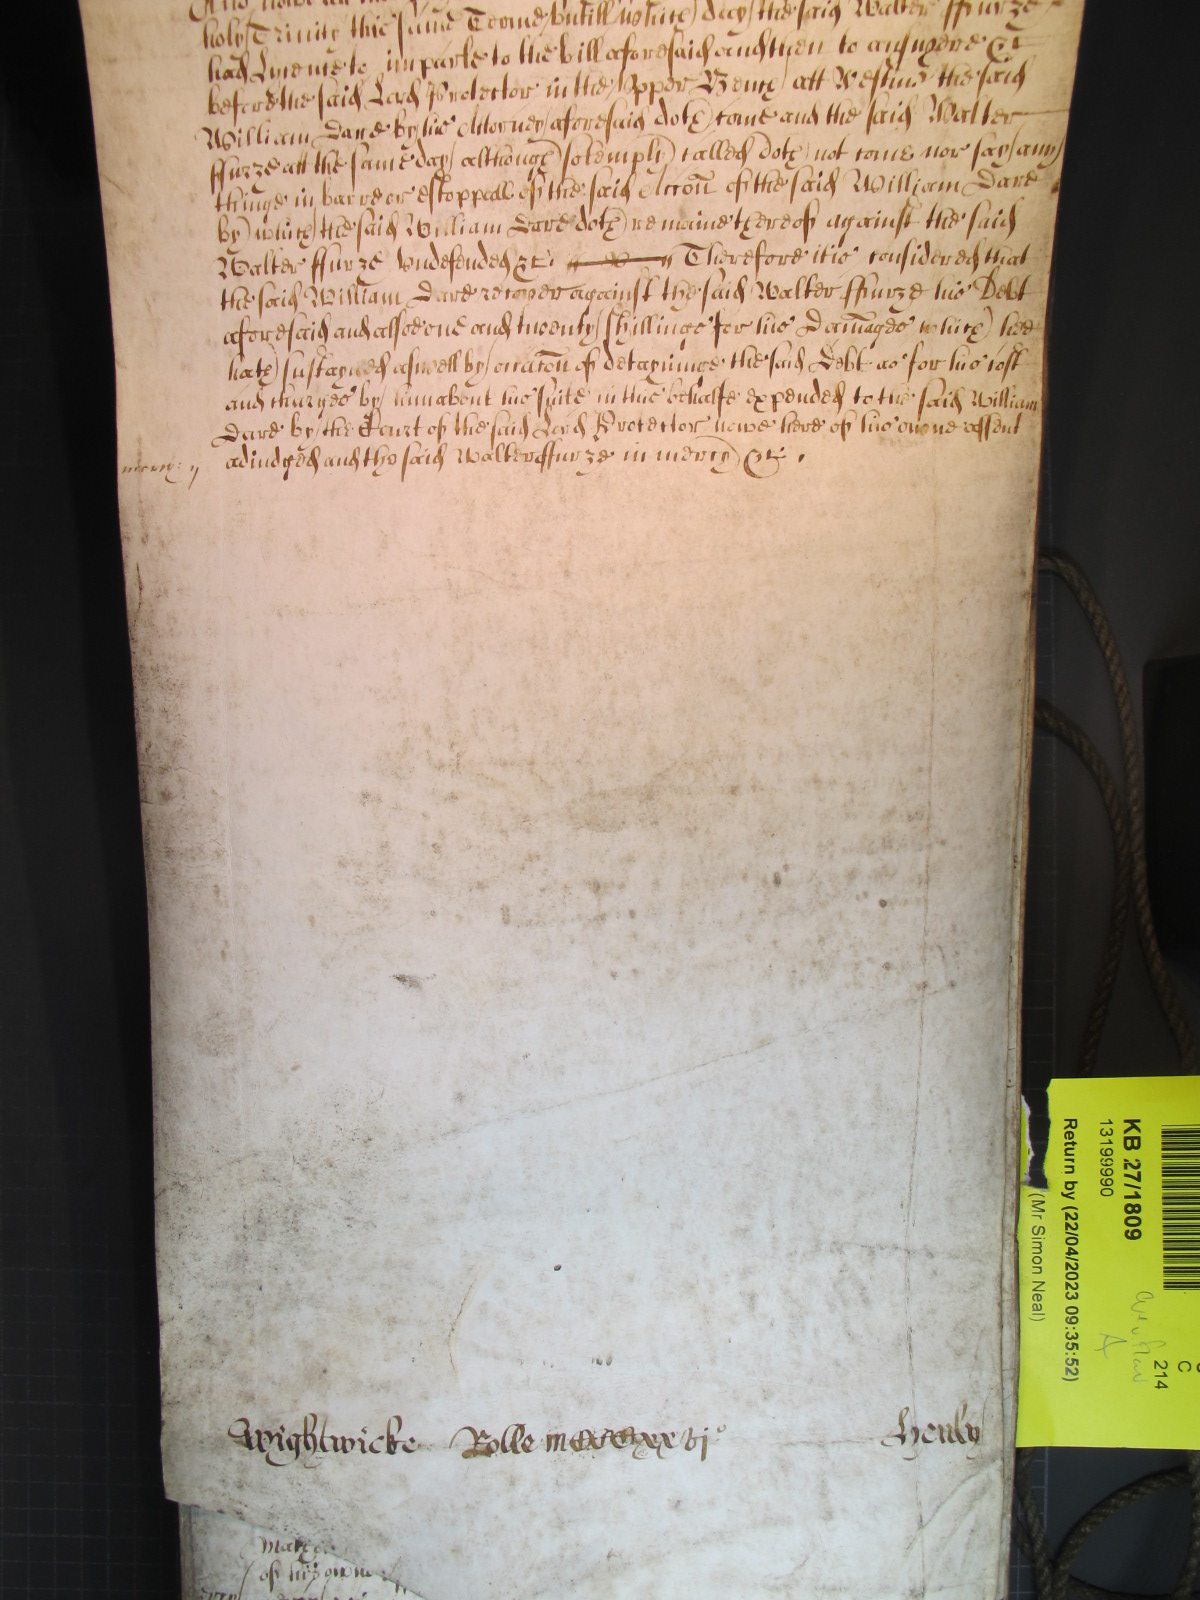 holy Trinity this same Terme untill which day the said Walter ffurze
had lycence to imparle to the bill aforesaid and then to answere &c
before the said Lord Protector in the Upper Bench att Westmr the said
William Dare by his Attorney aforesaid doth come and the said Walter
ffurze att the same day although solemply called doth not come nor say any
thinge in barre or estoppall of the said Accon of the said William Dare
by which the said William Dare doth remaine thereof against the said
Walter ffurze undefended &c. Therefore itis considered that
the said William Dare recover against the said Walter ffurze his Debt
aforesaid and alsoe one and twenty shillings for his Damages which hee
hath sustayned aswell by occacon of detayninge the said Debt as for his cost
and charges by him about his suite in this behalfe expended to the said William
Dare by the Court of the said Lord Protector nowe here of his owne assent
adiudged and the said Walter ffurze in mercy &c.
mercy:
Wightwicke Rolle Henly
of his owne
KB 27/1809
13199990
Return by (22/04/2023 09:35:52)
(Mr Simon Neal)
214
C
A